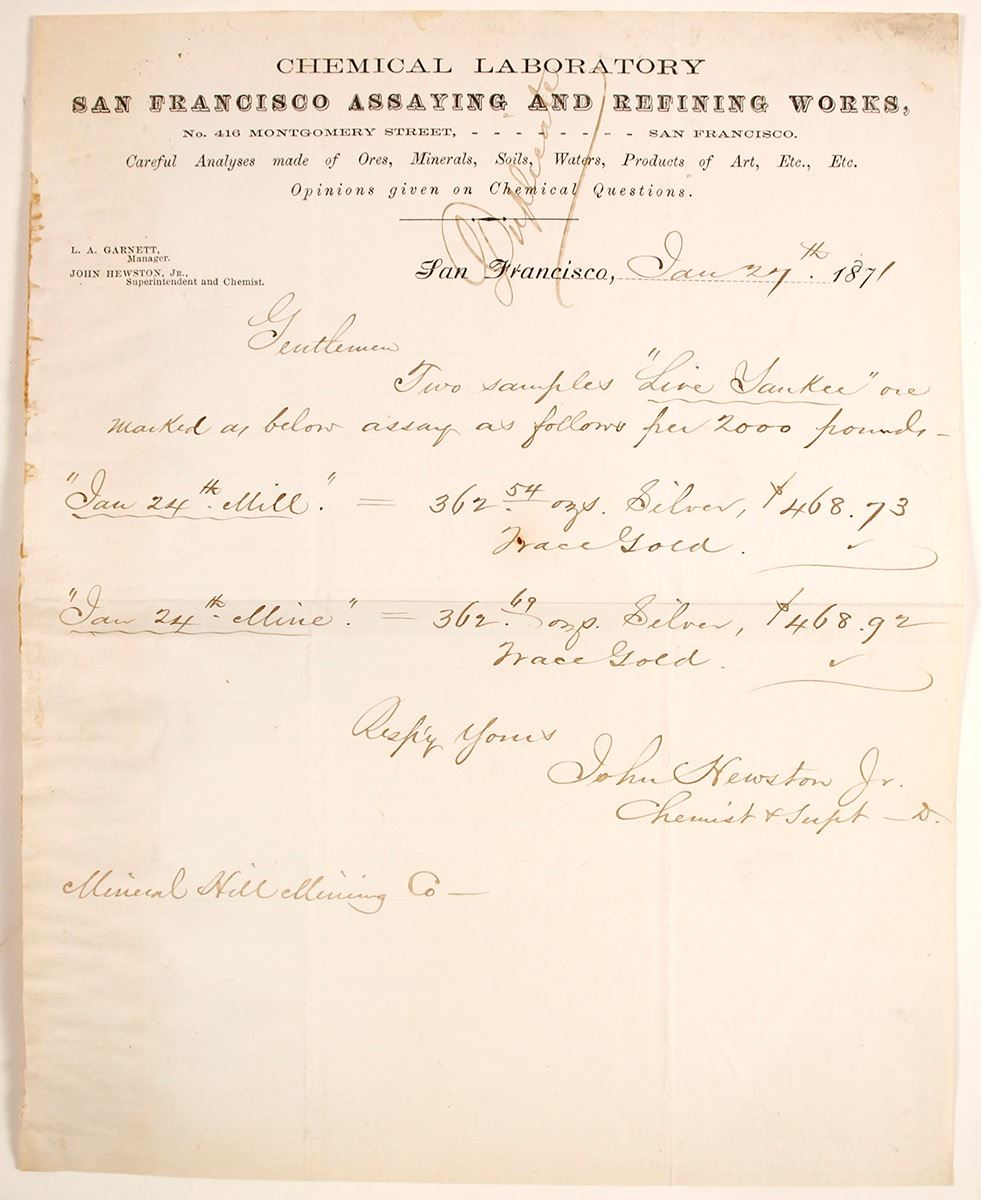 CHEMICAL LABORATORY
SAN FRANCISCO ASSAYING AND REFINING WORKS,
No. 416 MONTGOMERY STREET, - - - - - - - - SAN FRANCISCO.
Careful Analyses made of Ores, Minerals, Soils, Waters, Products of Art, Etc., Etc.
Opinions given on Chemical Questions.
Duplicate
L. A. GARNETT,
Manager.
JOHN HEWSTON, JR.,
Superintendent and Chemist.
San Francisco, Jan 27th. 1871
Gentlemen
Two samples "Live Yankee" ore
marked as below assay as follows per 2000 pounds—
"Jan 24th. Mill". = 362.54 ozs. Silver, $468.73
Trace Gold. ✓
"Jan 24th. Mine". = 362.69 ozs. Silver, $468.92
Trace Gold. ✓
Resp'y Yours
John Hewston Jr.
Chemist & Supt — D.
Mineral Hill Mining Co —